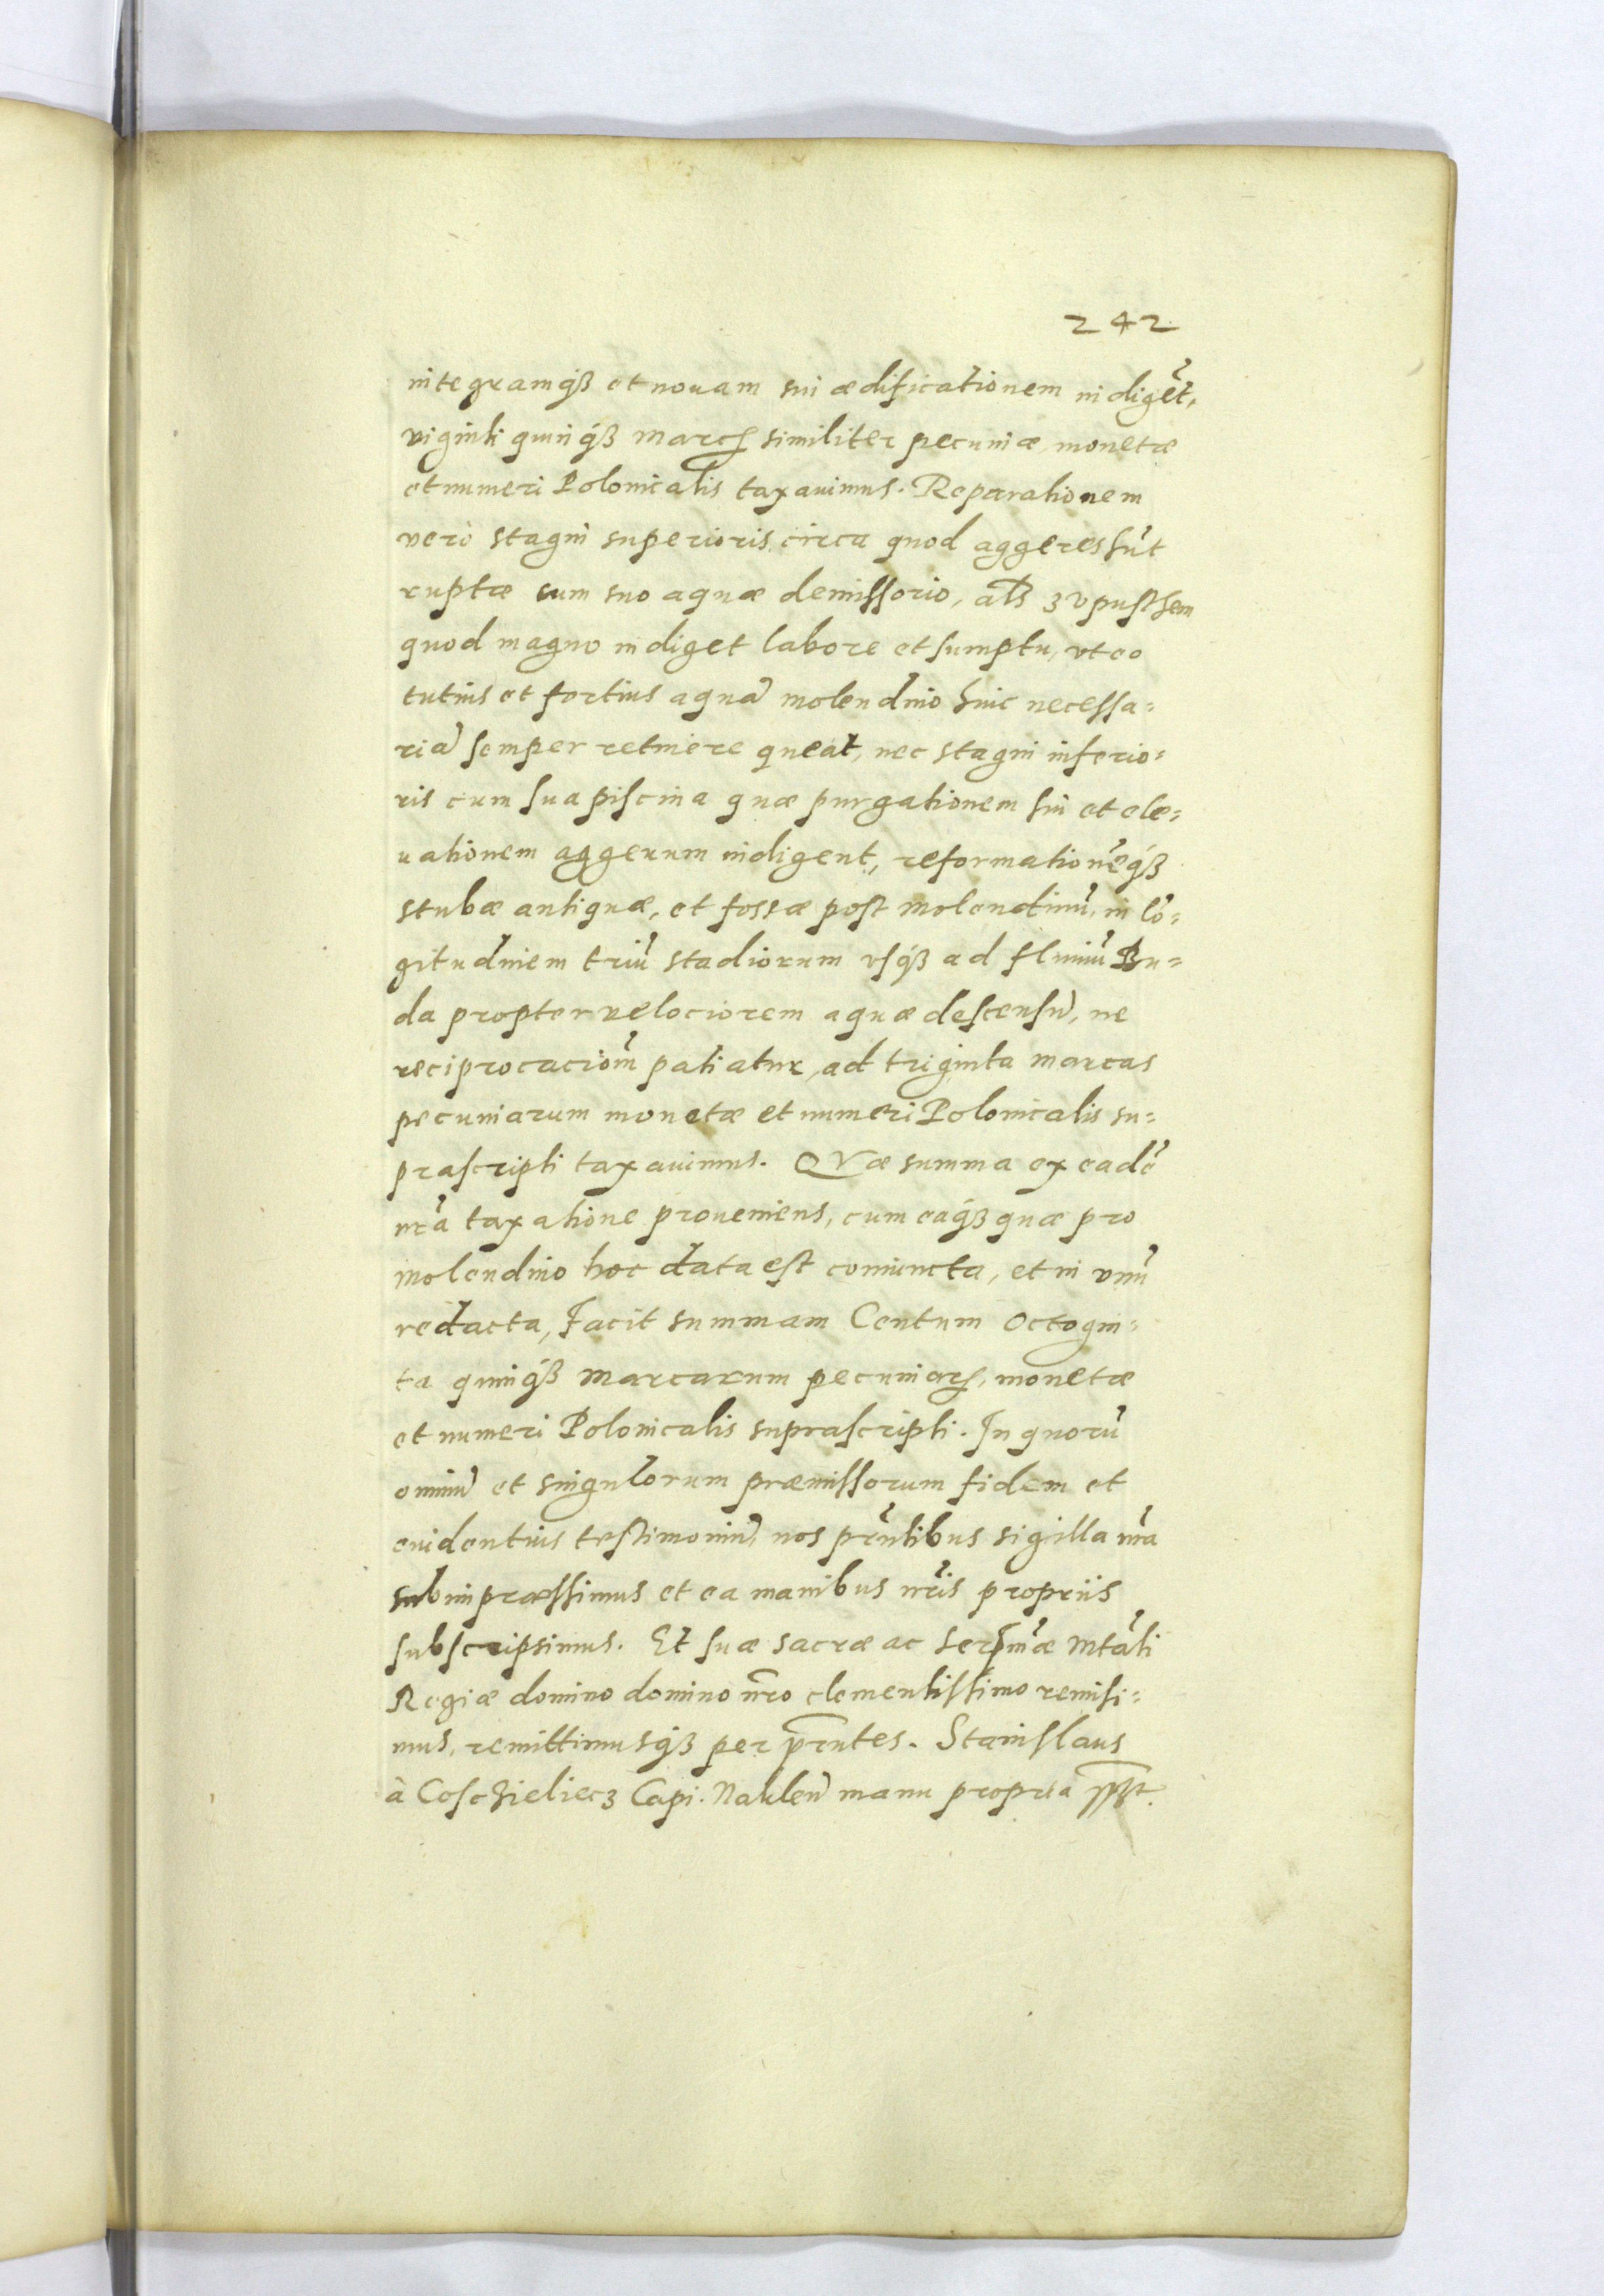 242
integramq́ꝫ et nouam sui ædificationem indigēt,
viginti quinq́ꝫ marcꝝ similiter pecuniæ, monetæ
et numeri Polonicalis taxauimus. Reparationem
verò stagni superioris, circa quod aggeres sūt
ruptæ cum suo aquæ demissorio, als zvpusthem
quod magno indiget labore et sumptu, vt eo
tutius et fortius aquā molendino huic necessa=
riā semper retinere queat, nec stagni inferio=
ris cum sua piscina quæ purgationem sui et ele=
uationem aggerum indigent, reformationēq́ꝫ
stubæ antiquæ, et fossæ post molendinū, in lō=
gitudinem triū stadiorum vsq́ꝫ ad fluuiū Bu=
da propter velociorem aquæ descensū, ne
reciprocacioīm patiatur, ad triginta marcas
pecuniarum monetæ et numeri Polonicalis su=
prascripti taxauimus. QVæ summa ex eadē
nr̄a taxatione proueniens, cum eaq́ꝫ quæ pro
molendino hoc data est coniuncta, et in vnū
redacta, Facit summam Centum Octogin=
ta quinq́ꝫ marcarum pecuniarꝝ, monetæ
et numeri Polonicalis suprascripti. In quorū
omniū et singulorum præmissorum fidem et
euidentius testimoniū, nos pn̄tibus sigilla nr̄a
subimpræssimus et ea manibus nr̄is propriis
subscripsimus. Et suæ sacræ ac Serssm̄æ Mtāti
Regiæ domino domino nr̄o clementissimo remisi=
mus, remittimusq́ꝫ per pr̄ntes. Stanislaus
à Coschieliecz Capi. Naklen̄ manu propria sst.